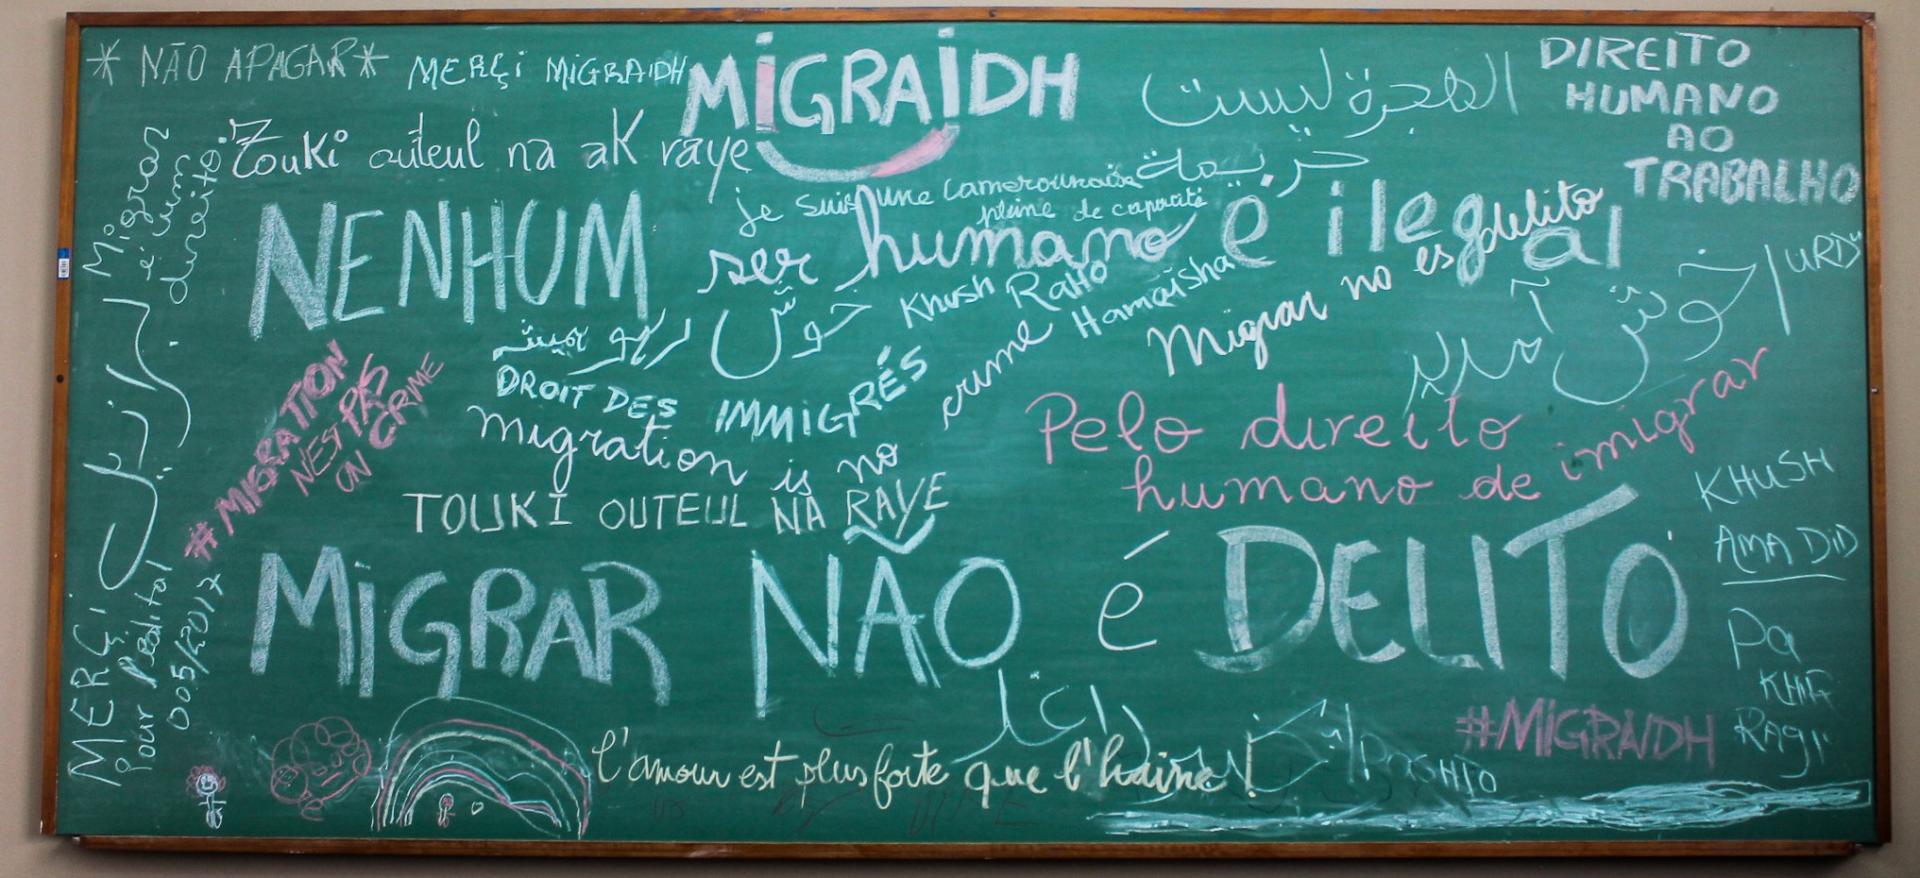 * NÃO APAGAR *
MERÇi MiGRAIDH
MiGRAIDH
الهجرة ليست
جريمة
DIREITO
HUMANO
AO
TRABALHO
Touki outeul na ak raye
Migrar
é um
direito!
je suis une Camerounaise
pleine de capacité
NENHUM ser humano é ilegal
Migrar no es delito
خوش ريو هميشہ
Khush RaHo
Hamaisha
URDU
خوش آمدید
DROIT DES IMMIGRÉS
migration is no crime
#MIGRATION
N'EST PAS
UN CRIME
Pelo direito
humano de imigrar
TOUKI OUTEUL NA RAYE
KHUSH
AMA DID
MiGRAR NÃO é DELITO
MERÇi
Pour l'édital
005/2017
Pa
KHIR
RAGI
#MiGRAIDH
PASHTO
L'amour est plus forte que l'haine!